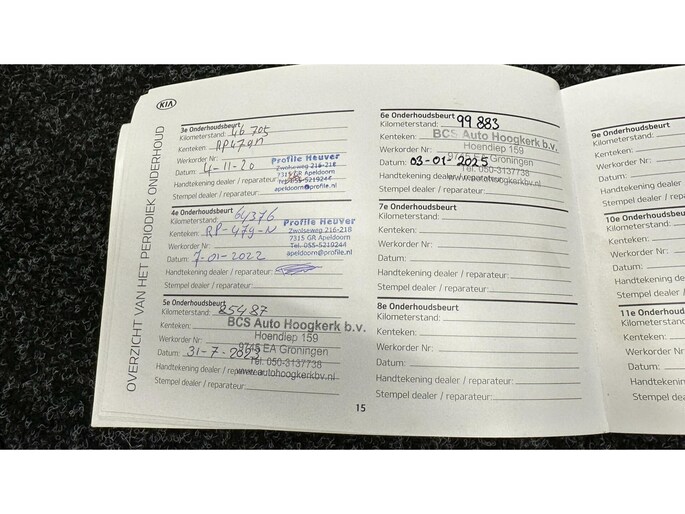 KIA
OVERZICHT VAN HET PERIODIEK ONDERHOUD
3e Onderhoudsbeurt
Kilometerstand: 46 705
Kenteken:
Werkorder Nr:
Datum: 4-11-20
Handtekening dealer / reparateur:
Stempel dealer / reparateur:
Profile Heuver
Zwolseweg 216-218
7315 GR Apeldoorn
Tel. 055-5219244
apeldoorn@profile.nl
4e Onderhoudsbeurt
Kilometerstand: 64376
Kenteken: RP-479-N
Werkorder Nr:
Datum: 7-01-2022
Handtekening dealer / reparateur:
Stempel dealer / reparateur:
Profile Heuver
Zwolseweg 216-218
7315 GR Apeldoorn
Tel. 055-5219244
apeldoorn@profile.nl
5e Onderhoudsbeurt
Kilometerstand: 85487
Kenteken:
Werkorder Nr:
Datum: 31-7-2023
Handtekening dealer / reparateur:
Stempel dealer / reparateur:
BCS Auto Hoogkerk b.v.
Hoendiep 159
9745 EA Groningen
Tel. 050-3137738
www.autohoogkerkbv.nl
15
6e Onderhoudsbeurt
Kilometerstand: 99 883
Kenteken:
Werkorder Nr:
Datum: 03-01-2025
Handtekening dealer / reparateur:
Stempel dealer / reparateur:
BCS Auto Hoogkerk b.v.
Hoendiep 159
9745 EA Groningen
Tel. 050-3137738
www.autohoogkerkbv.nl
7e Onderhoudsbeurt
Kilometerstand:
Kenteken:
Werkorder Nr:
Datum:
Handtekening dealer / reparateur:
Stempel dealer / reparateur:
8e Onderhoudsbeurt
Kilometerstand:
Kenteken:
Werkorder Nr:
Datum:
Handtekening dealer / reparateur:
Stempel dealer / reparateur:
9e Onderhoudsbeurt
Kilometerstand:
Kenteken:
Werkorder Nr:
Datum:
Handtekening
Stempel deal
10e Onderhoud
Kilometersta
Kenteken:
Werkorder Nr
Datum:
Handtekening
Stempel deale
11e Onderhoud
Kilometerstand
Kenteken:
Werkorder Nr:
Datum:
Handtekening
Stempel dealer